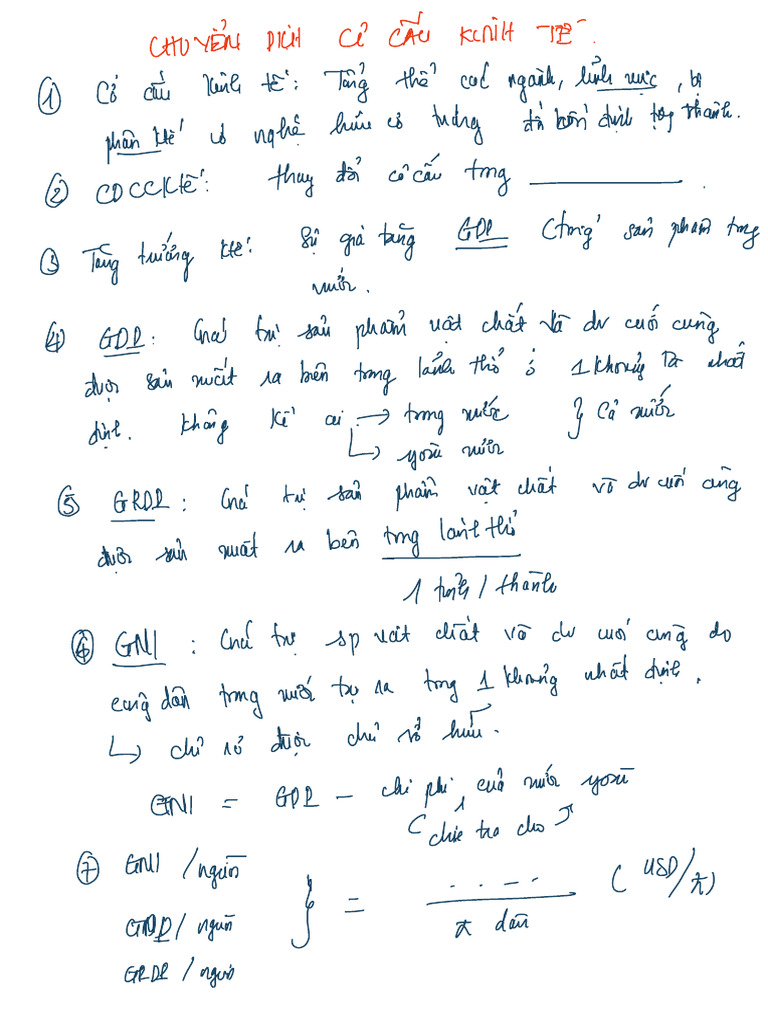 CHUYỂN DỊCH CƠ CẤU KINH TẾ.
① Cơ cấu kinh tế: Tổng thể các ngành, lĩnh vực, bộ
phận ktế có nghệ hữu cơ tương đối ổn định hợp thành.
② CDCCKtế: thay đổi cơ cấu trong ________.
③ Tăng trưởng ktế: Sự gia tăng GDP (tổng sản phẩm trong
nước.
④ GDP: Giá trị sản phẩm vật chất và dv cuối cùng
được sản xuất ra bên trong lãnh thổ ở 1 khoảng nhất
định. Không kể ai → trong nước } Cả nước
↳ ngoài nước
⑤ GRDP: Giá trị sản phẩm vật chất và dv cuối cùng
được sản xuất ra bên trong lãnh thổ
1 tỉnh / thành
⑥ GNI: Giá trị sp vật chất và dv cuối cùng do
công dân trong nước tạo ra trong 1 khoảng nhất định.
↳ chỉ rõ được chủ sở hữu.
GNI = GDP - chi phí của nước ngoài
(chia trả cho)
⑦ GNI /người
GDP / người } = ..... / dân (USD/)
GRDP / người